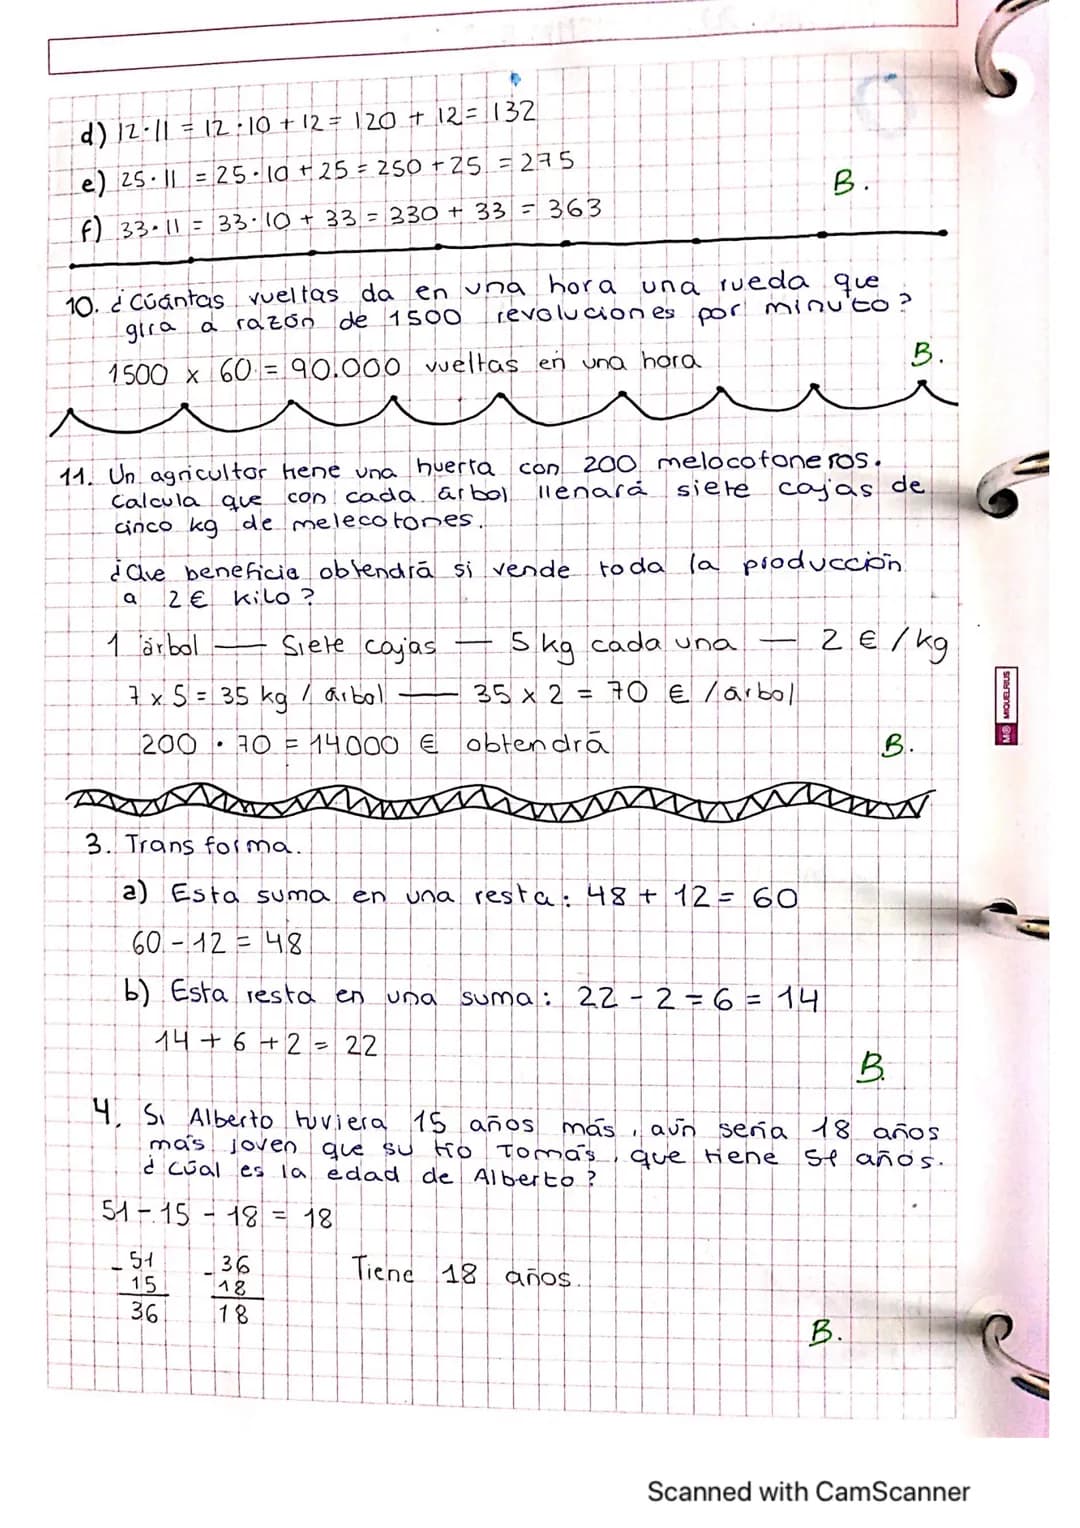 d) 12·11 = 12·10 + 12 = 120 + 12 = 132
e) 25·11 = 25·10 + 25 = 250 + 25 = 275
B.
f) 33·11 = 33·10 + 33 = 330 + 33 = 363
10. ¿Cúantas vueltas da en una hora una rueda que
gira a razón de 1500 revoluciones por minuto?
1500 x 60 = 90.000 vueltas en una hora
B.
11. Un agricultor tiene una huerta con 200 melocotoneros.
Calcula que con cada árbol llenará siete cajas de
cinco kg de melecotones.
¿Que beneficio obtendrá si vende toda la producción
a 2€ kilo?
1 árbol — Siete cajas — 5 kg cada una — 2 €/kg
7 x 5 = 35 kg / árbol — 35 x 2 = 70 € /árbol
200 · 70 = 14000 € obtendrá
B.
3. Transforma.
a) Esta suma en una resta: 48 + 12 = 60
60 - 12 = 48
b) Esta resta en una suma: 22 - 2 = 6 = 14
14 + 6 + 2 = 22
B.
4. Si Alberto tuviera 15 años más, aún sería 18 años
más joven que su tío Tomás, que tiene 51 años.
¿cúal es la edad de Alberto?
51 - 15 - 18 = 18
- 51 - 36
15 18
36 18
Tiene 18 años.
B.
MIQUELRIUS
Scanned with CamScanner